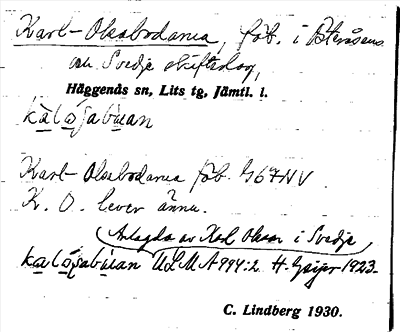 Karl-Olsabodarna, föb. i Österåsens
och Svedje skifteslag,
Häggenås sn, Lits tg, Jämtl. l.
Karl-Olsabodarna föb. G67NV
K. O. lever ännu.
(Antagda av Karl Olsson i Svedje
ULMA 994:2 H. Geijer 1923.
C. Lindberg 1930.